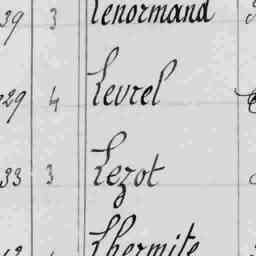 39 3 Lenormand
29 4 Levrel
33 3 Lezot
Lhermite